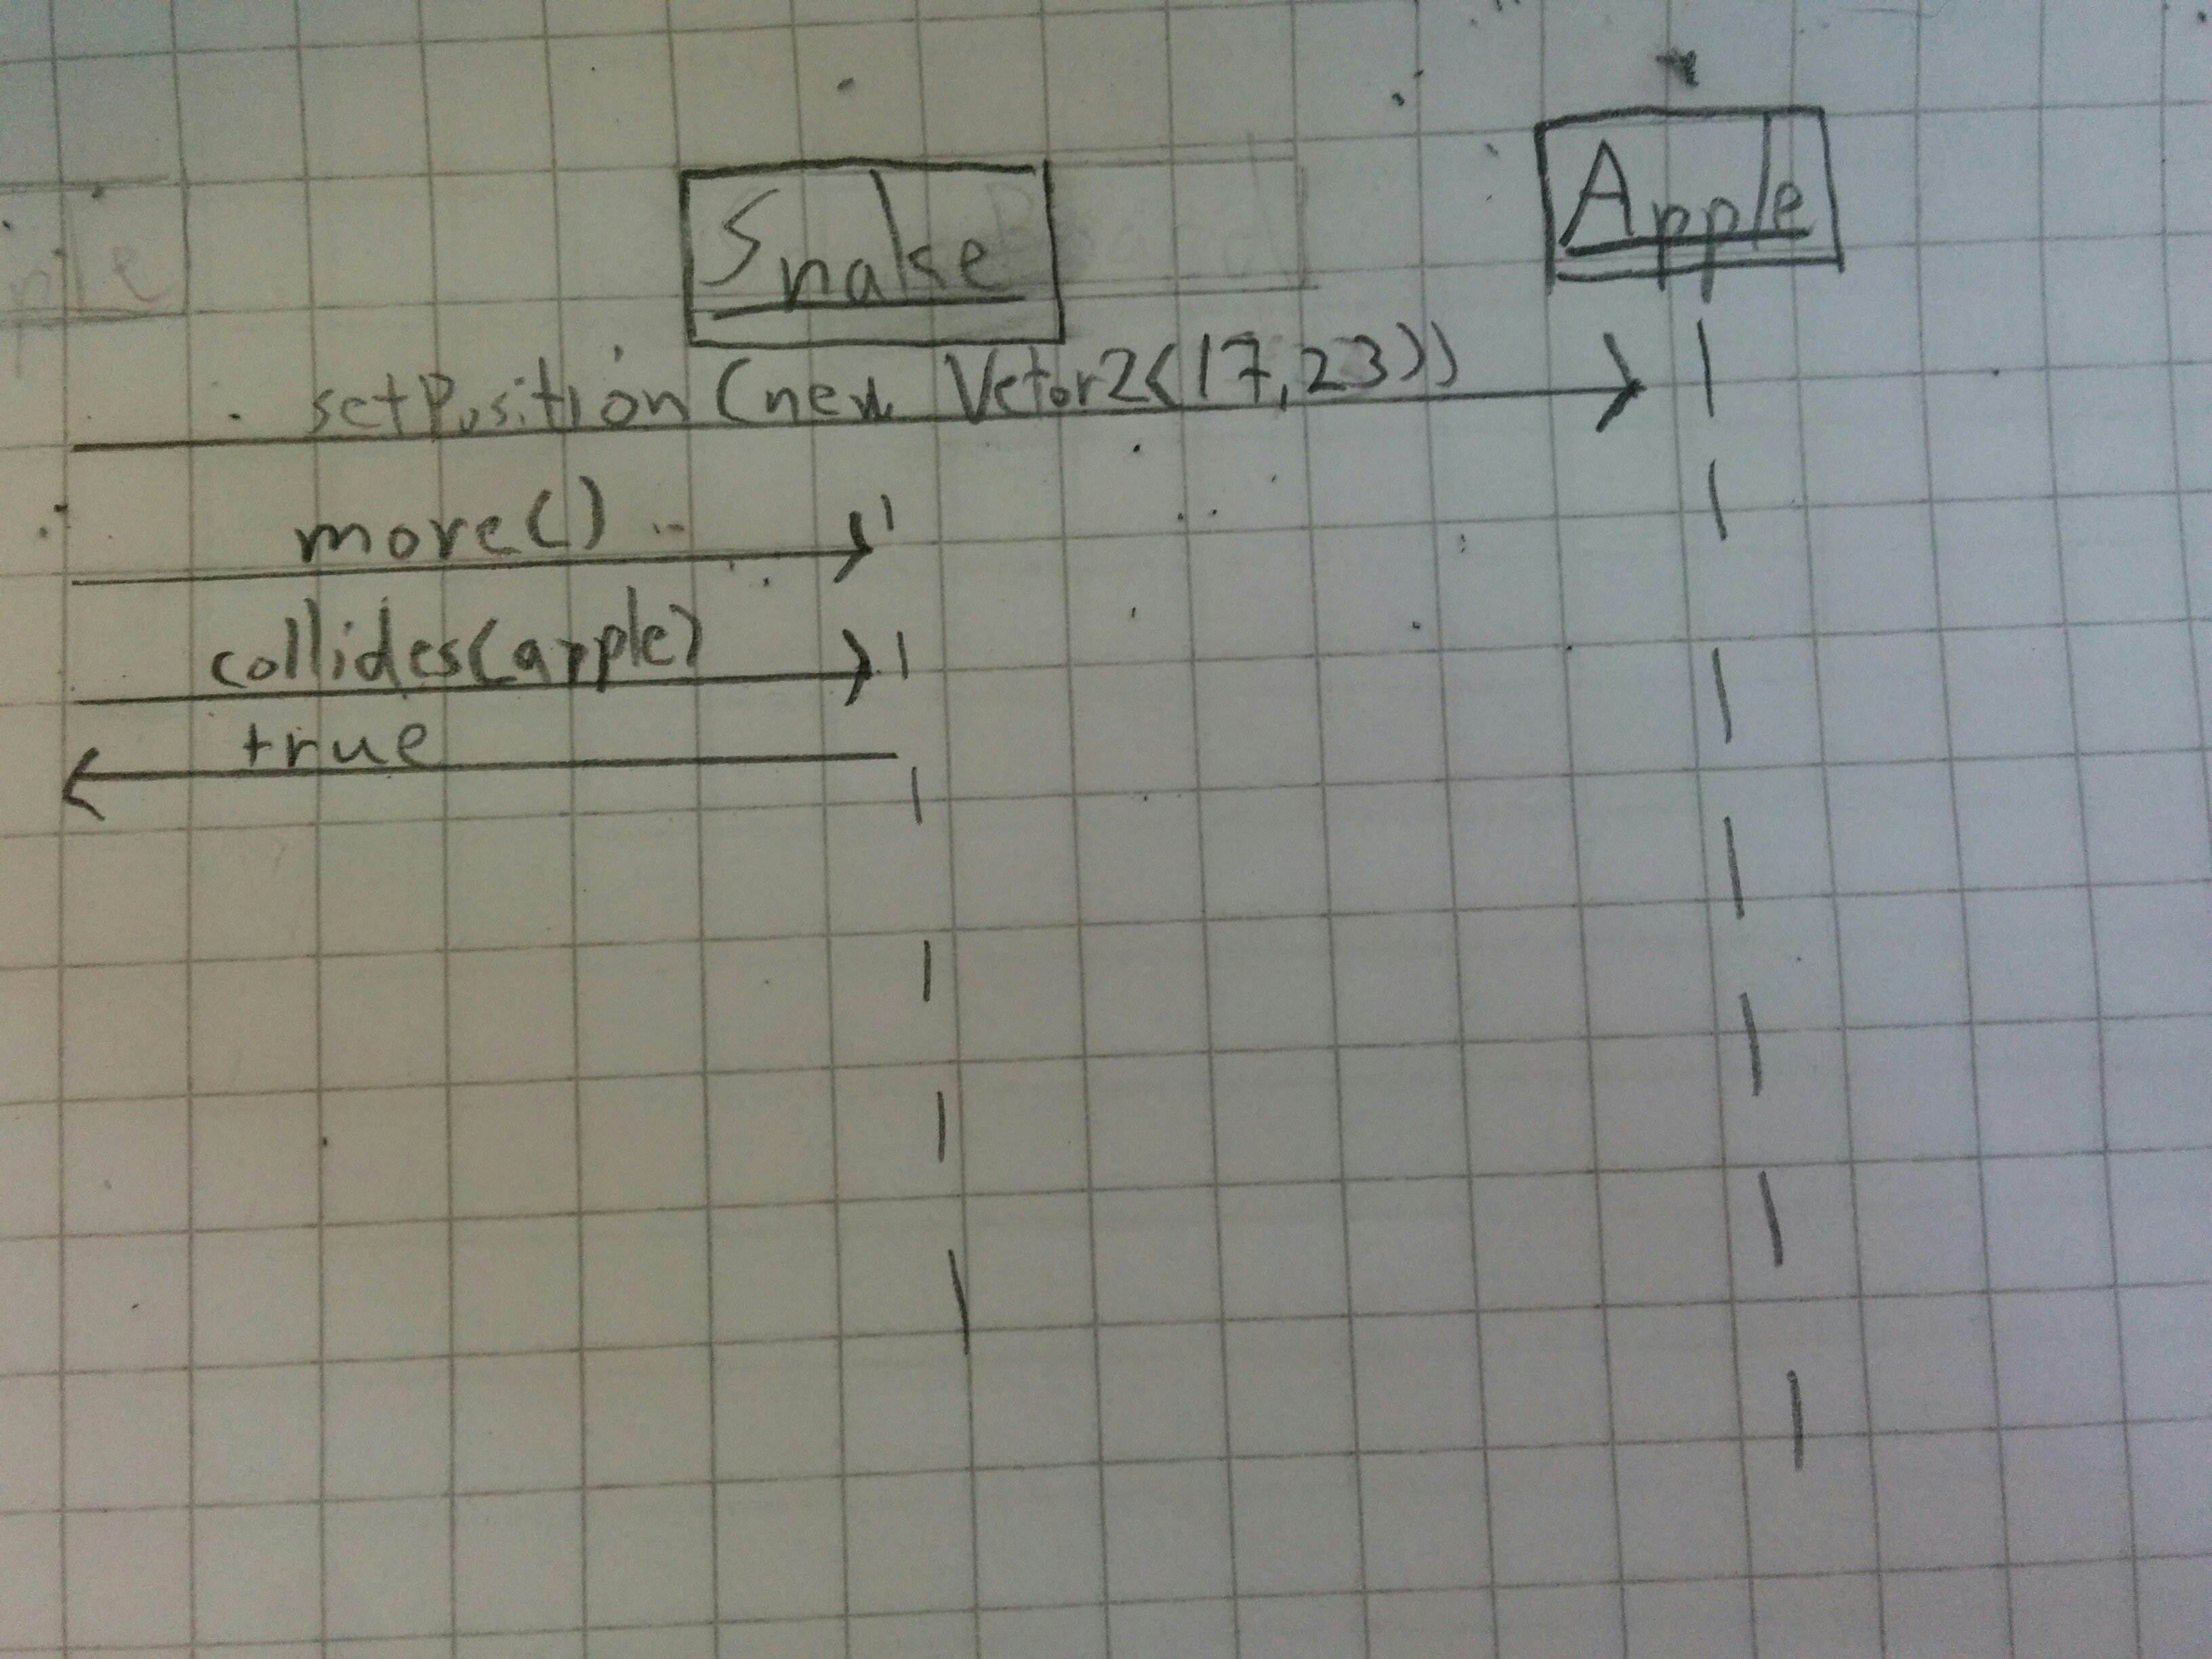 Snake
Apple
setPosition(new Vetor2(17,23))
move()
collides(apple)
true